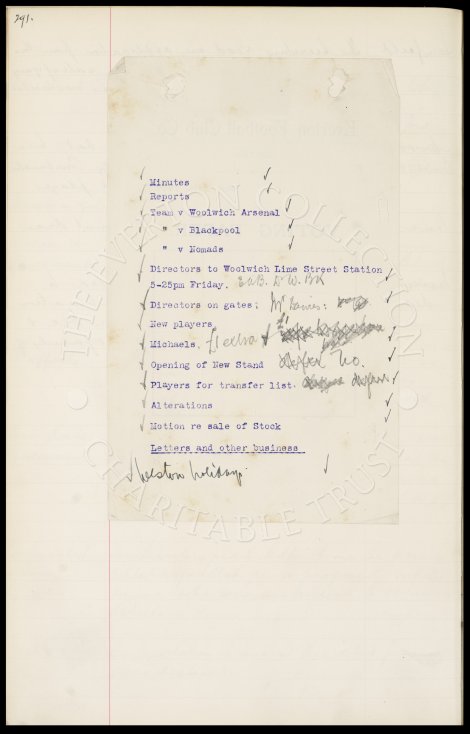 291.
Minutes
Reports
Team v Woolwich Arsenal
" v Blackpool
" v Nomads
Directors to Woolwich Lime Street Station
5-25pm Friday.
Directors on gates: Mr Davies:
New players
Michaels.
Opening of New Stand No.
Players for transfer list. defer
Alterations
Motion re sale of Stock
Letters and other business
holiday.
THE EVERTON COLLECTION
CHARITABLE TRUST